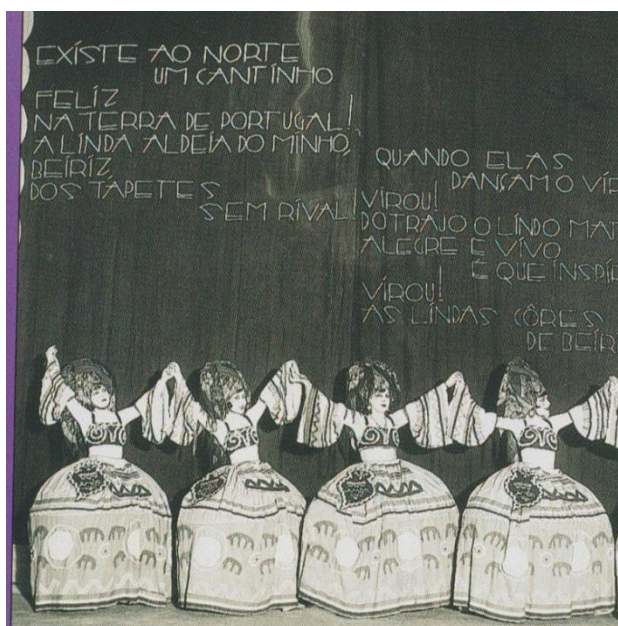 EXÍSTE AO NORTE
UM CANTÍNHO
FELÍZ
NA TERRA DE PORTUGAL!
A LÍNDA ALDEÍA DO MÍNHO,
BEÍRÍZ,
DOS TAPETES
SEM RÍVAL!
QUANDO ELAS
DANSAM O VÍR
VÍROU!
DO TRAJO O LÍNDO MAT
ALEGRE E VÍVO
É QUE ÍNSPÍR
VÍROU!
AS LÍNDAS CÔRES
DE BEÍR